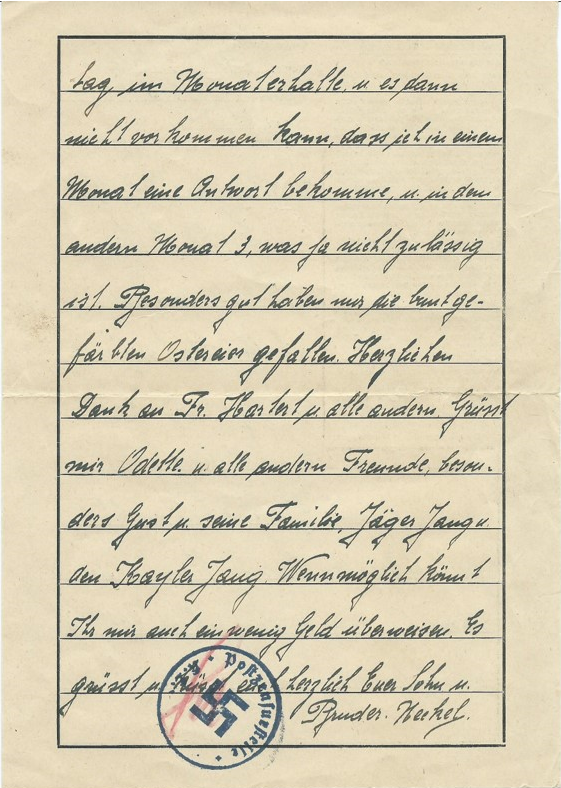 tag, im Monat erhalte. u. es dann
nicht vorkommen kann, dass ich in einem
Monat eine Antwort bekomme, u. in dem
andern Monat 3, was ja nicht zulässig
ist. Besonders gut haben mir die buntge-
färbten Ostereier gefallen. Herzlichen
Dank an Fr. Hartert u. alle andern. Grüsst
mir Odette. u. alle andern Freunde, beson-
ders Gust u. seine Familie, Jäger Jang u.
den Kayler Jang. Wennmöglich könnt
Ihr mir auch ein wenig Geld überweisen. Es
grüsst u. küsst euch herzlich Euer Sohn u.
Bruder. Heckel.
Postzensurstelle